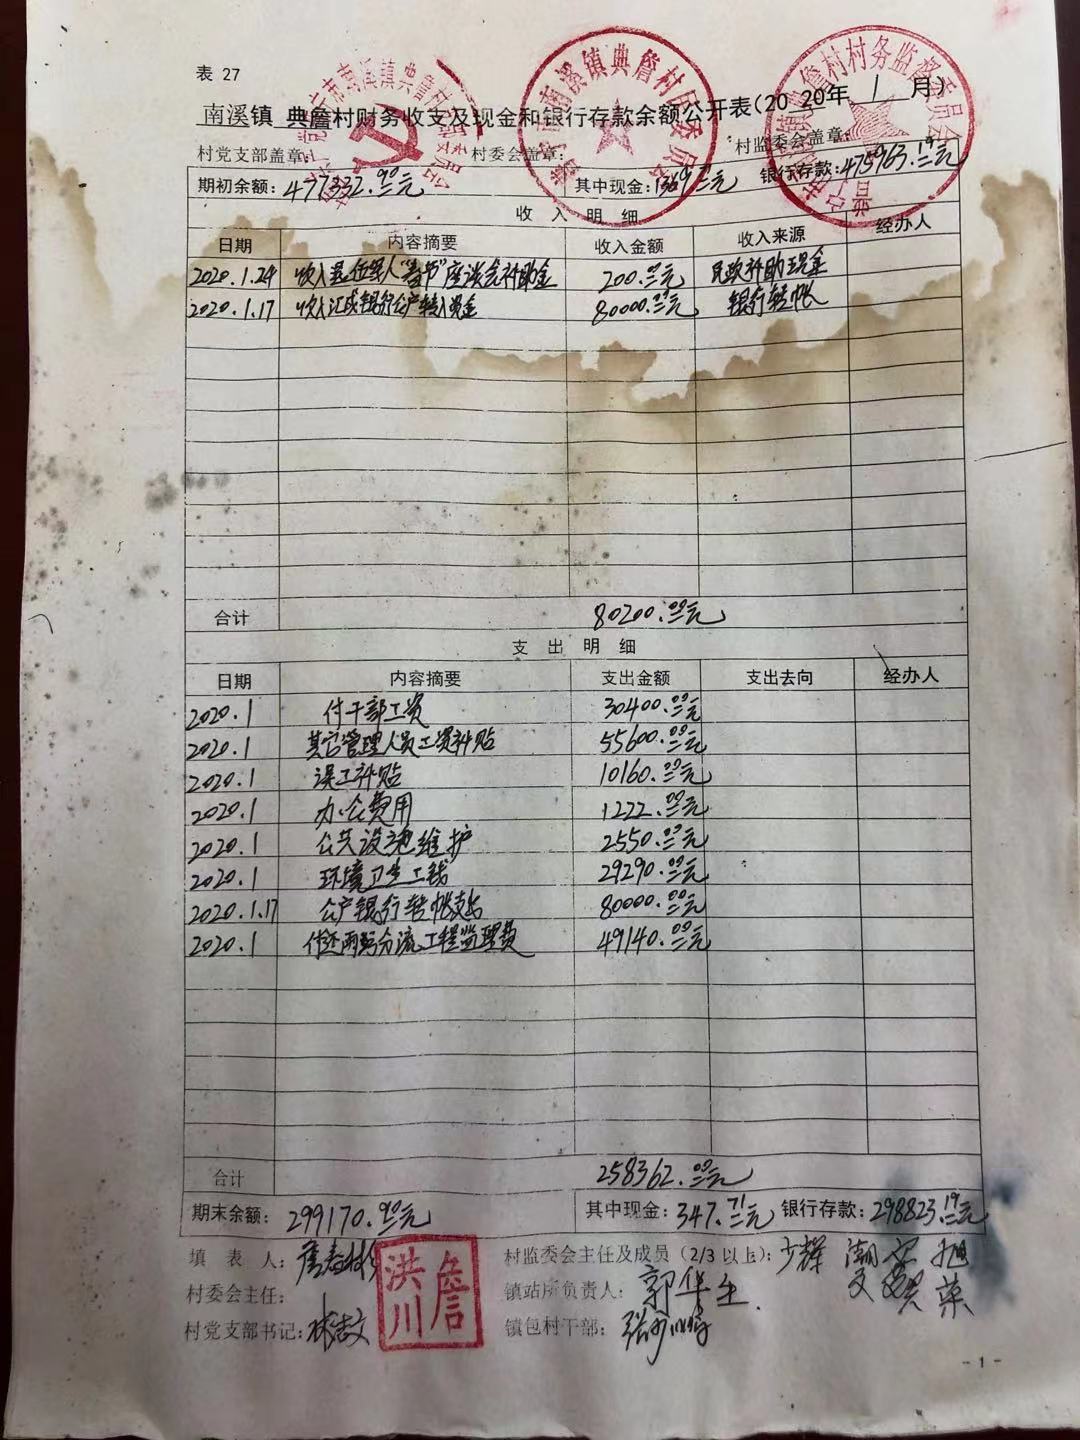 表 27
南溪镇 典詹村财务收支及现金和银行存款余额公开表(2020年 1 月)
村党支部盖章: 村委会盖章: 村监委会盖章:
期初余额:477332.90元 其中现金:1369.71元 银行存款:475963.19元
收 入 明 细
日期 内容摘要 收入金额 收入来源 经办人
2020.1.24 收入退伍军人“春节”座谈会补助金 200.00元 民政补助现金
2020.1.17 收入汇成银行公户转入现金 80000.00元 银行转帐
合计 80200.00元
支 出 明 细
日期 内容摘要 支出金额 支出去向 经办人
2020.1 付干部工资 30400.00元
2020.1 其它管理人员工资补贴 55600.00元
2020.1 误工补贴 10160.00元
2020.1 办公费用 1222.00元
2020.1 公共设施维护 2550.00元
2020.1 环境卫生工钱 29290.00元
2020.1.17 公户银行转帐支出 80000.00元
2020.1 付还雨污分流工程监理费 49140.00元
合计 258362.00元
期末余额:299170.90元 其中现金:347.71元 银行存款:298823.19元
填 表 人: 村监委会主任及成员(2/3以上):
村委会主任: 詹洪川 镇站所负责人:郭华生
村党支部书记:林志文 镇包村干部:
- 1 -